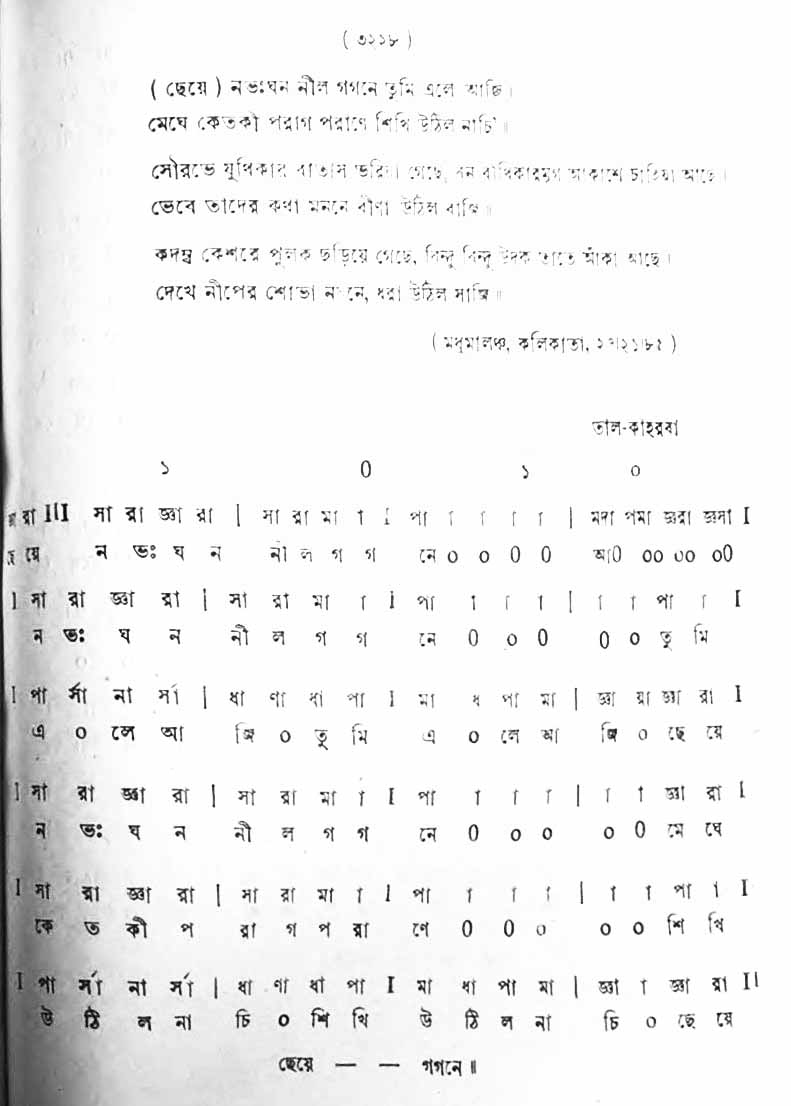 ( ৩২১৮ )
( ছেয়ে ) নভঃঘন নীল গগনে তুমি এলে আজি।
মেঘে কেতকী পরাগ পরাণে শিখি উঠিল নাচি॥
সৌরভে যুথিকার বাতাস ভরিয়া গেছে, বন আকাশে চাহিয়া আছে।
ভেবে তাদের কথা মননে বীণা উঠিল বাজি॥
কদম্ব কেশরে পুলক ছড়িয়ে গেছে, বিন্দু বিন্দু উদক তাতে আঁকা আছে।
দেখে নীপের শোভা নয়নে, ধরা উঠিল সাজি॥
( মধুমালঞ্চ, কলিকাতা, )
তাল-কাহরবা
১ 0 ১ ০
রা III সা রা জ্ঞা রা | সা রা মা া I পা া া া | মদা পমা জ্ঞরা জ্ঞদা I
ছেয়ে ন ভঃ ঘ ন নী ল গ গ নে ০ ০ 0 0 আ0 00 00 00
I সা রা জ্ঞা রা | সা রা মা া I পা া া া | া া পা া I
ন ভঃ ঘ ন নী ল গ গ নে 0 ০ 0 0 ০ তু মি
I পা র্সা না র্সা | ধা ণা ধা পা I মা ধ পা মা | জ্ঞা য়া জ্ঞা রা I
এ ০ লে আ জি ০ তু মি এ ০ লে আ জি ০ ছে য়ে
I সা রা জ্ঞা রা | সা রা মা া I পা া া া | া া জ্ঞা রা I
ন ভঃ ঘ ন নী ল গ গ নে 0 ০ ০ ০ 0 মে ঘে
I সা রা জ্ঞা রা | সা রা মা া I পা া া া | া া পা া I
কে ত কী প রা গ প রা ণে 0 0 ০ ০ ০ শি খি
I পা র্সা না র্সা | ধা ণা ধা পা I মা ধা পা মা | জ্ঞা া জ্ঞা রা II
উ ঠি ল না চি ০ শি খি উ ঠি ল না চি ০ ছে য়ে
ছেয়ে — — গগনে॥